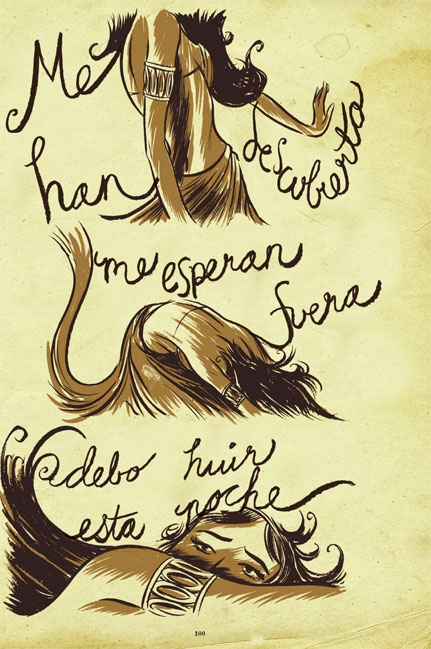 Me
han descubierto
me esperan
fuera
debo huir
esta noche
100